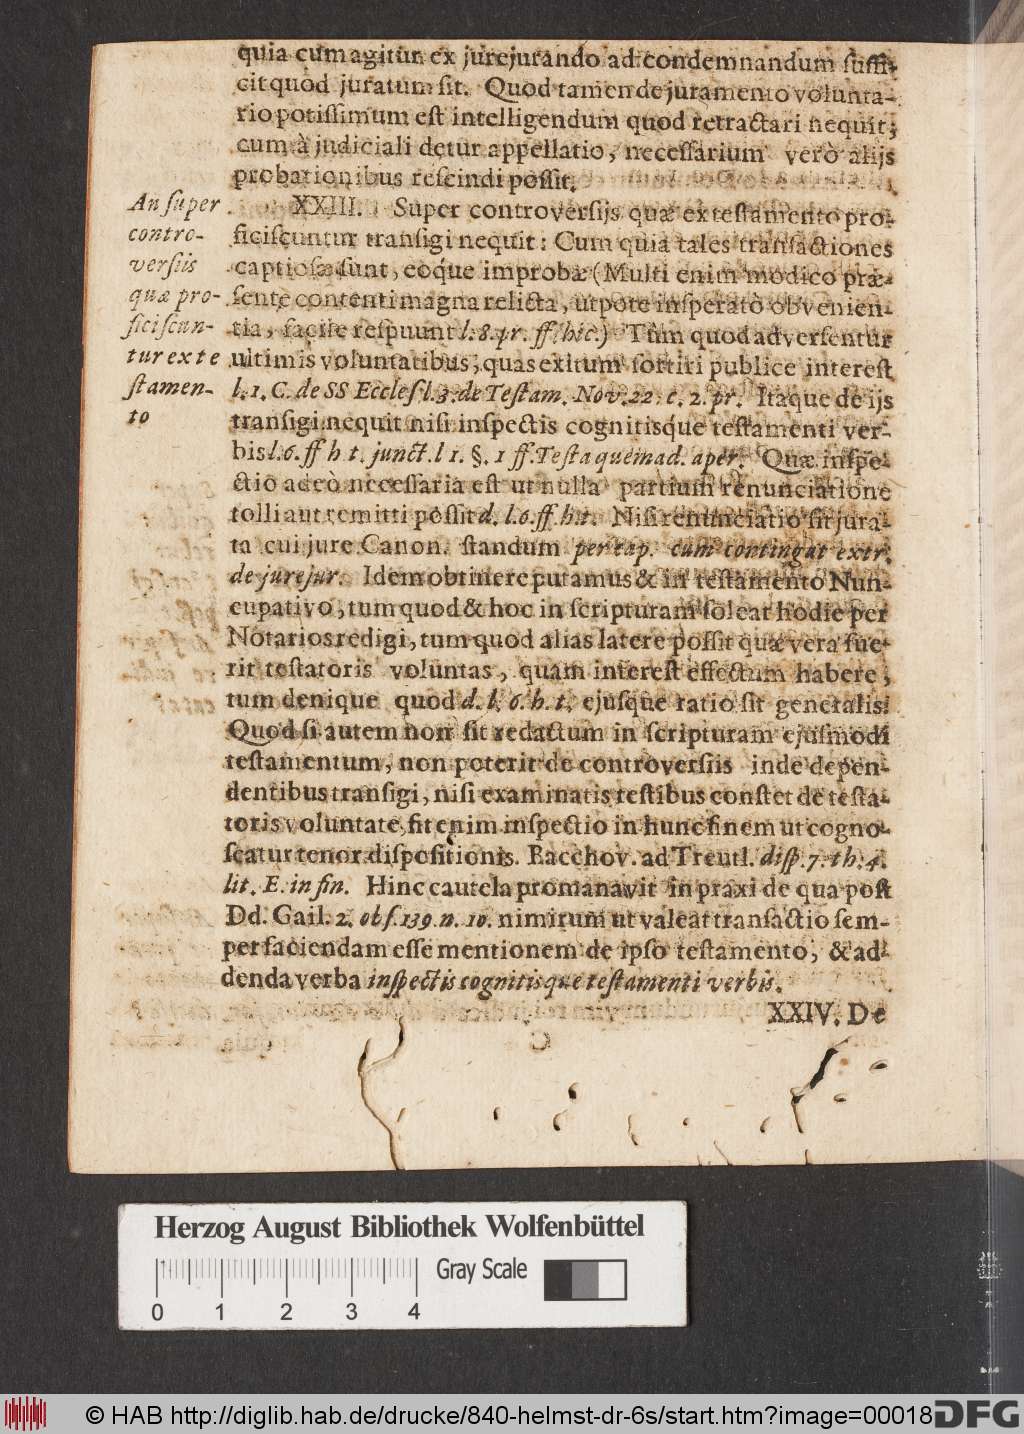 quia cum agitur ex jurejurando ad condemnandum suffi-
cit quòd juratum sit. Quod tamen de juramento volunta-
rio potissimum est intelligendum quod retractari nequit;
cum à judiciali detur appellatio, necessarium verò alijs
probationibus rescindi possit.
An super
contro-
versiis
quæ pro-
ficiscun-
tur ex te
stamen-
to
XXIII. Super controversijs quæ ex testamento pro-
ficiscuntur transigi nequit: Cum quia tales transactiones
captiosæ sunt, eoque improbæ (Multi enim modico præ-
sente contenti magna relicta, utpote insperatò obvenien-
tia, facile respuunt l. 8. pr. ff. hic.) Tùm quod adversentur
ultimis voluntatibus, quas exitum sortiri publice interest
l. 1. C. de SS Eccles l. 3. de Testam. Nov. 22. c. 2. pr. Itaque de ijs
transigi nequit nisi inspectis cognitisque testamenti ver-
bis l. 6. ff h t. junct. l 1. §. 1 ff. Testa quemad. aper. Quæ inspe-
ctio adeò necessaria est ut nulla partium renunciatione
tolli aut remitti possit d. l. 6. ff. h. t. Nisi renunciatio sit jura-
ta cui jure Canon. standum per cap. cum contingat extr.
de jurejur. Idem obtinere putamus & in testamento Nun-
cupativo, tum quod & hoc in scripturam soleat hodie per
Notarios redigi, tum quod alias latere possit quæ vera fue-
rit testatoris voluntas, quam interest effectum habere;
tum denique quod d. l. 6. h. t. ejusque ratio sit generalis:
Quod si autem non sit redactum in scripturam ejusmodi
testamentum, non poterit de controversiis inde depen-
dentibus transigi, nisi examinatis testibus constet de testa-
toris voluntate, fit enim inspectio in hunc finem ut cogno-
scatur tenor dispositionis. Bacchov. ad Treutl. disp. 7. th. 4.
lit. E. in fin. Hinc cautela promanavit in praxi de qua post
Dd. Gail. 2. obs. 139. n. 10. nimirum ut valeat transactio sem-
per faciendam esse mentionem de ipso testamento, & ad-
denda verba inspectis cognitisque testamenti verbis.
XXIV. De
Herzog August Bibliothek Wolfenbüttel
Gray Scale
0 1 2 3 4
© HAB http://diglib.hab.de/drucke/840-helmst-dr-6s/start.htm?image=00018
DFG